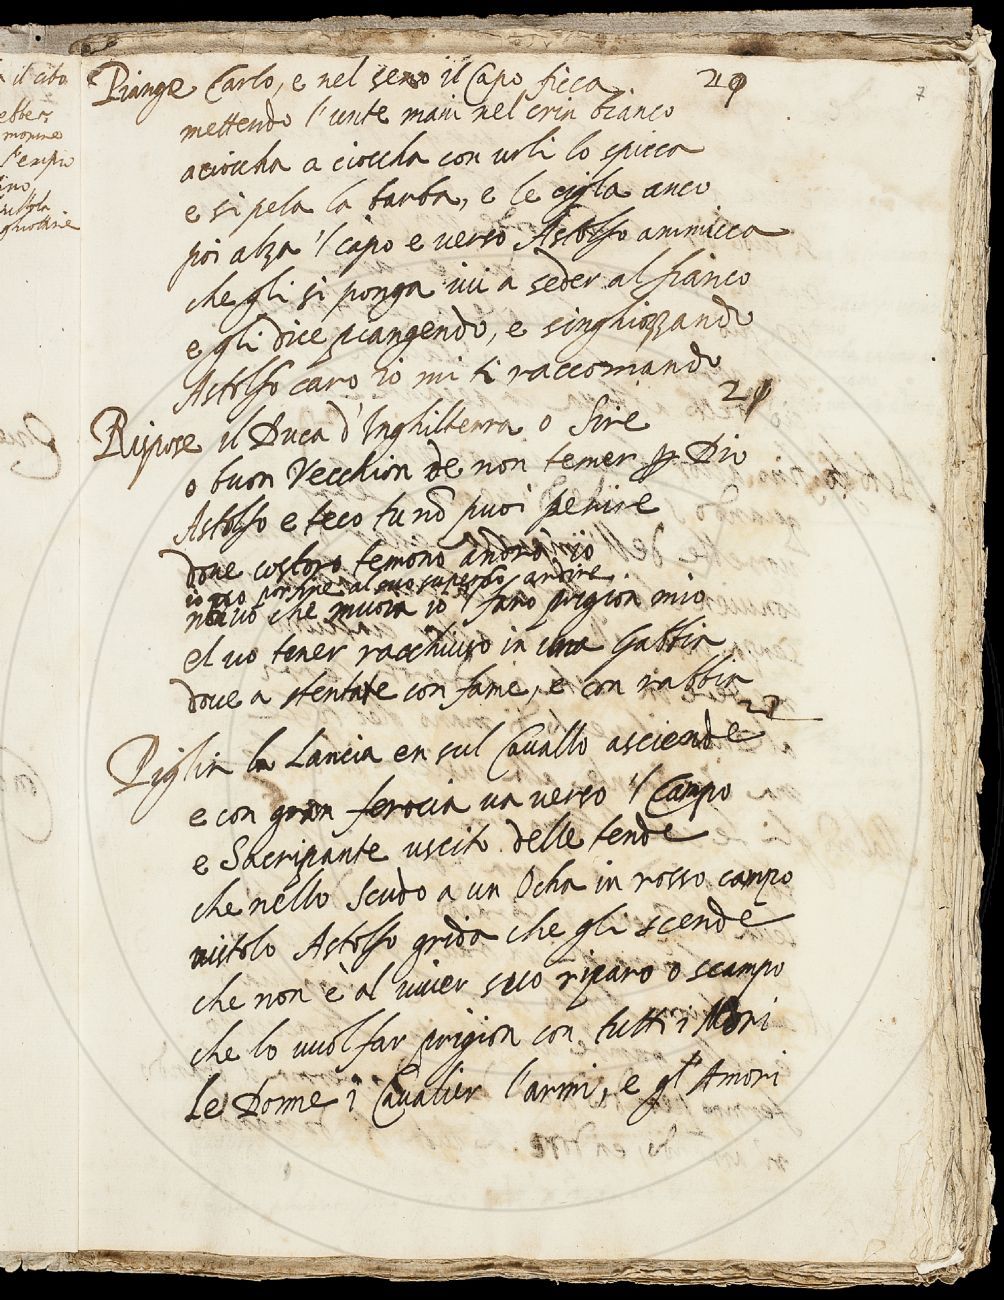 7
Piange Carlo, e nel seno il Capo ficca
mettendo l'unte mani nel crin bianco
a ciocha a ciocha con urli lo spicca
e si pela la barba, e le cigla anco
poi alza 'l capo e verso Astolfo ammicca
che gli si ponga ivi a seder al fianco
e gli dice piangendo, e singhiozzando
Astolfo caro io mi ti raccomando
Rispose il Duca d'Inghilterra o Sire
o buon Vecchion de non temer Dio
Astolfo e teco tu nõ puoi perire
dove costoro temono andrò io
io vo por fine al suo superbo ardire
vo che muoia io 'l farò prigion mio
el vo tener racchiuso in una Gabbia
dove a stentare con fame, e con rabbia
Piglia la Lancia en sul Cavallo asciende
e con gran ferocia va verso 'l Campo
e Sacripante uscito delle tende
che nello Scudo a un Ocha in rosso campo
vistolo Astolfo grida che gli scende
che non è al viver suo riparo o scampo
che lo vuol far prigion con tutti i Mori
Le Donne i Cavalier l'armi, e gl'Amori